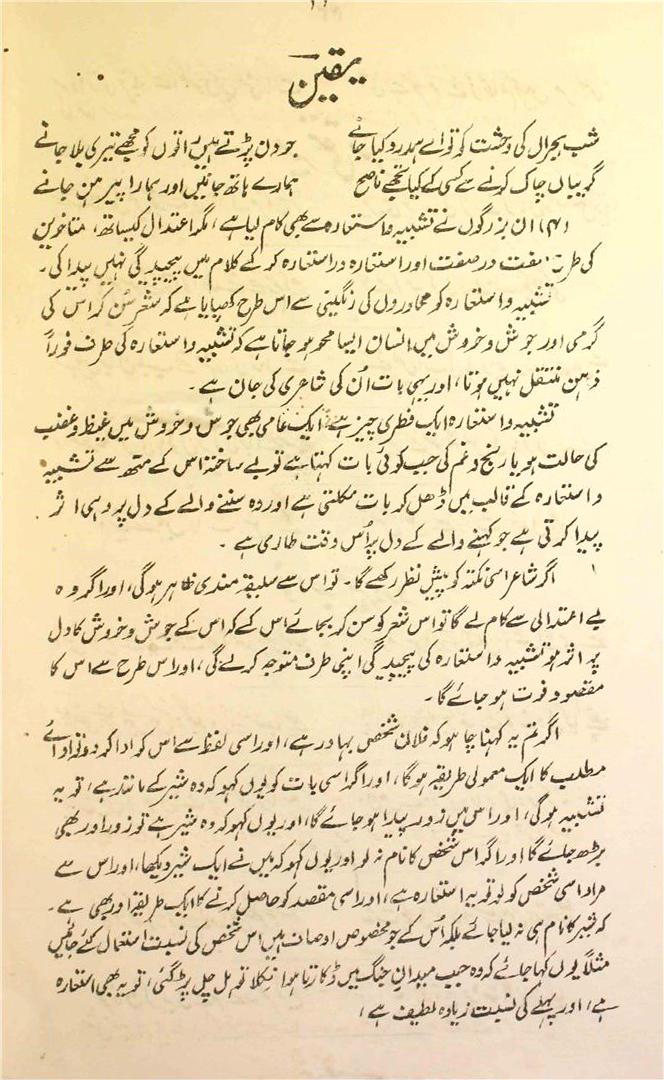 یقین
شب ہجراں کی وحشت کو تو اے بیدرد کیا جانے جو دن پڑتے ہیں راتوں کو مجھے تیری بلا جانے
گریباں چاک کرنے سے کسی کے کیا تجھے ناصح ہمارے ہاتھ جانیں اور ہمارا پیرہن جانے
(۴) ان بزرگوں نے تشبیہ و استعارہ سے بھی کام لیا ہے، مگر اعتدال کیساتھ، متاخرین
کی طرح صفت در صفت اور استعارہ در استعارہ کرکے کلام میں پیچیدگی نہیں پیدا کی۔
تشبیہ و استعارہ کو محاوروں کی رنگینی سے اس طرح کھپایا ہے کہ شعر سُن کر اس کی
گرمی اور جوش و خروش میں انسان ایسا محو ہو جاتا ہے کہ تشبیہ و استعارہ کی طرف فوراً
ذہن منتقل نہیں ہوتا، اور یہی بات اُن کی شاعری کی جان ہے۔
تشبیہ و استعارہ ایک فطری چیز ہے، ایک عامی بھی جوش و خروش میں غیظ و غضب
کی حالت ہو یا رنج و غم کی جب کوئی بات کہتا ہے تو بے ساختہ اس کے منھ سے تشبیہ
و استعارہ کے قالب میں ڈھل کر بات نکلتی ہے اور وہ سننے والے کے دل پر وہی اثر
پیدا کرتی ہے جو کہنے والے کے دل پر اُس وقت طاری ہے۔
اگر شاعر اسی نکتہ کو پیش نظر رکھے گا۔ تو اس سے سلیقہ مندی ظاہر ہوگی، اور اگر وہ
بے اعتدالی سے کام لے گا تو اس شعر کو سن کر بجائے اس کے کہ اس کے جوش و خروش کا دل
پر اثر ہو تشبیہ و استعارہ کی پیچیدگی اپنی طرف متوجہ کرلے گی، اور اس طرح سے اس کا
مقصود فوت ہو جائے گا۔
اگر تم یہ کہنا چاہو کہ فلاں شخص بہادر ہے، اور اسی لفظ سے اس کو ادا کرو تو ادائے
مطلب کا ایک معمولی طریقہ ہوگا، اور اگر اسی بات کو یوں کہو کہ وہ شیر کے مانند ہے، تو یہ
تشبیہ ہوگی، اور اس میں زور پیدا ہو جائے گا، اور یوں کہو کہ وہ شیر ہے تو زور اور بھی
بڑھ جائے گا اور اگر اس شخص کا نام نہ لو اور یوں کہو کہ میں نے ایک شیر دیکھا، اور اس سے
مراد اسی شخص کو لو تو یہ استعارہ ہے، اور اسی مقصد کو حاصل کرنے کا ایک طریقہ اور بھی ہے۔
کہ شیر کا نام ہی نہ لیا جائے بلکہ اُس کے جو مخصوص اوصاف ہیں اس شخص کی نسبت استعمال کئے جائیں
مثلاً یوں کہا جائے کہ وہ جب میدان جنگ میں ڈکارتا ہوا نکلا تو ہل چل پڑ گئی، تو یہ بھی استعارہ
ہے، اور پہلے کی نسبت زیادہ لطیف ہے،